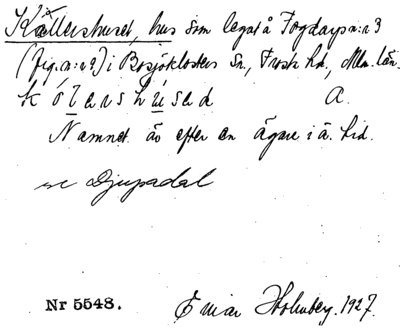 Källershuset, hus som legat å Fogdarps n:r 3
(fig. n:r 9) i Bosjöklosters sn, Frosta hd, Mlm. län.
A.
Namnet är efter en ägare i ä. tid.
se Djupadal
Nr 5548. Einar Holmberg. 1927.